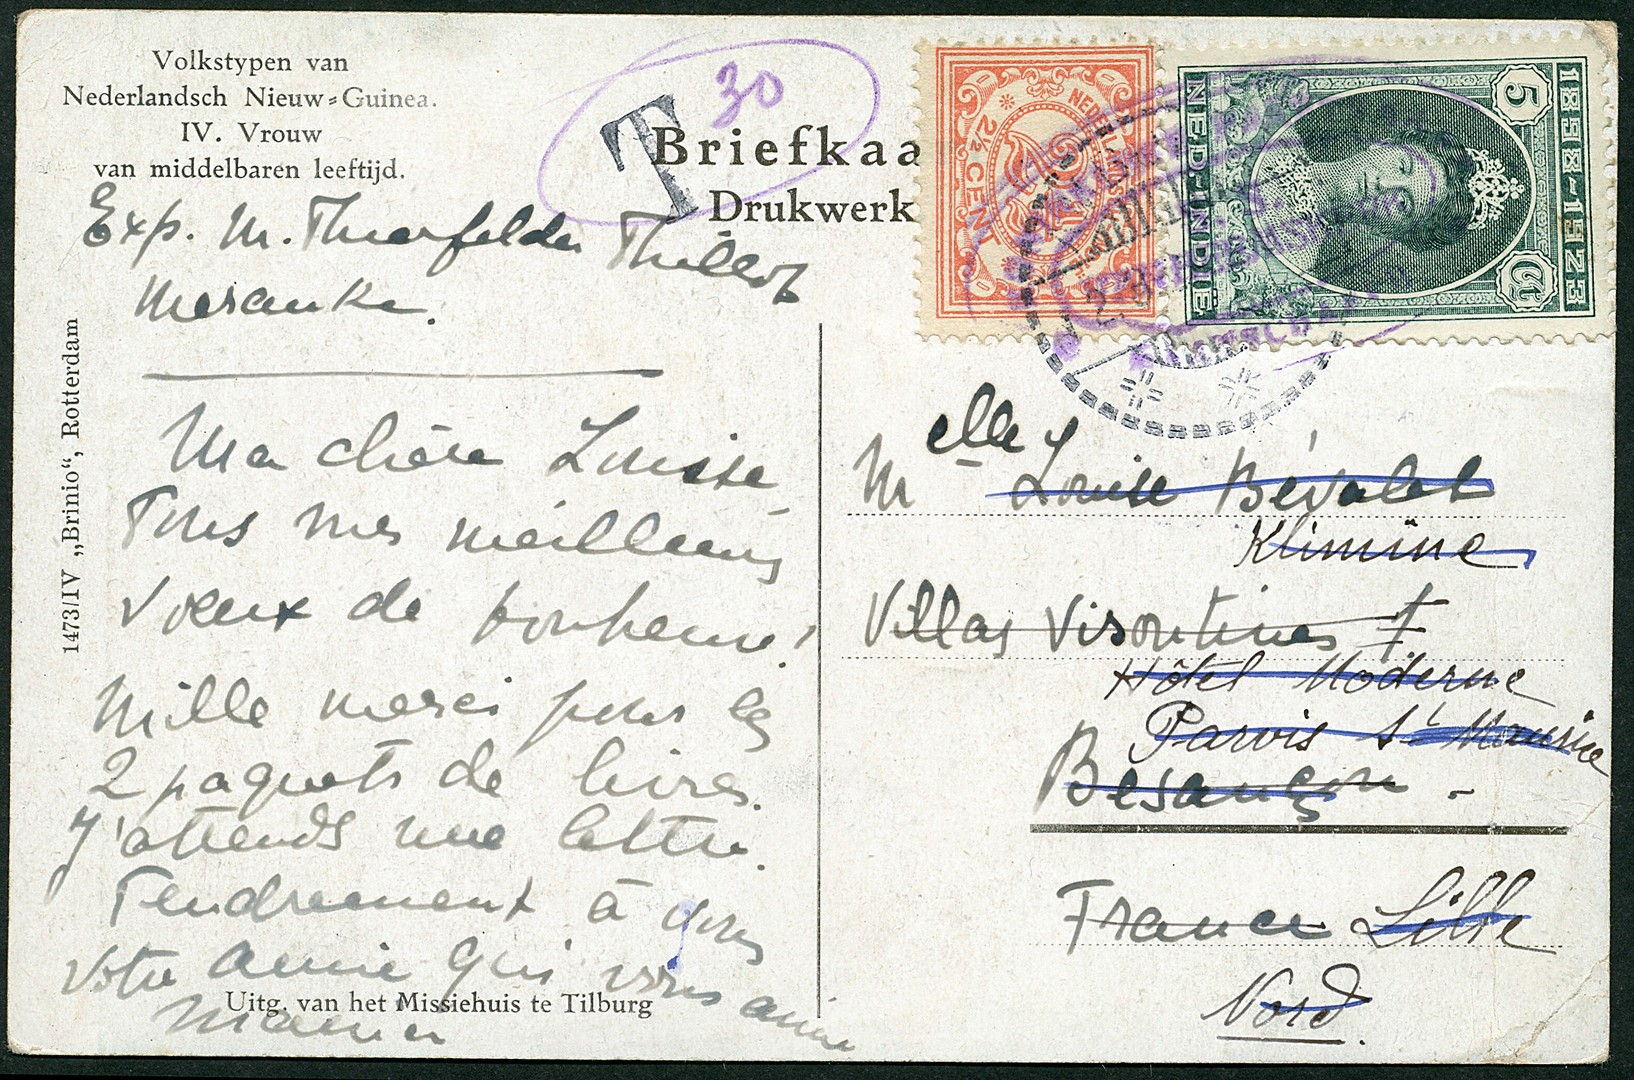 Volkstypen van
Nederlandsch Nieuw-Guinea.
IV. Vrouw
van middelbaren leeftijd.
T
30
Briefkaa
Drukwerk
2½ CENT
NEDERL
5
Ct
1898-1923
NED.-INDIË
Exp. M. Thierfelder Thillot
Merauke.
1473/IV „Brinio“, Rotterdam
Ma chère Louise
Tous mes meilleurs
voeux de bonheur!
Mille merci pour les
2 paquets de livres.
J'attends une lettre.
Tendrement à vous
votre amie qui vous aime
Uitg. van het Missiehuis te Tilburg
Melle
Louise Bévalet
Klimine
Villas Visontines 7
Hôtel Moderne
Parvis St Maurice
Besançon -
France Lille
Nord